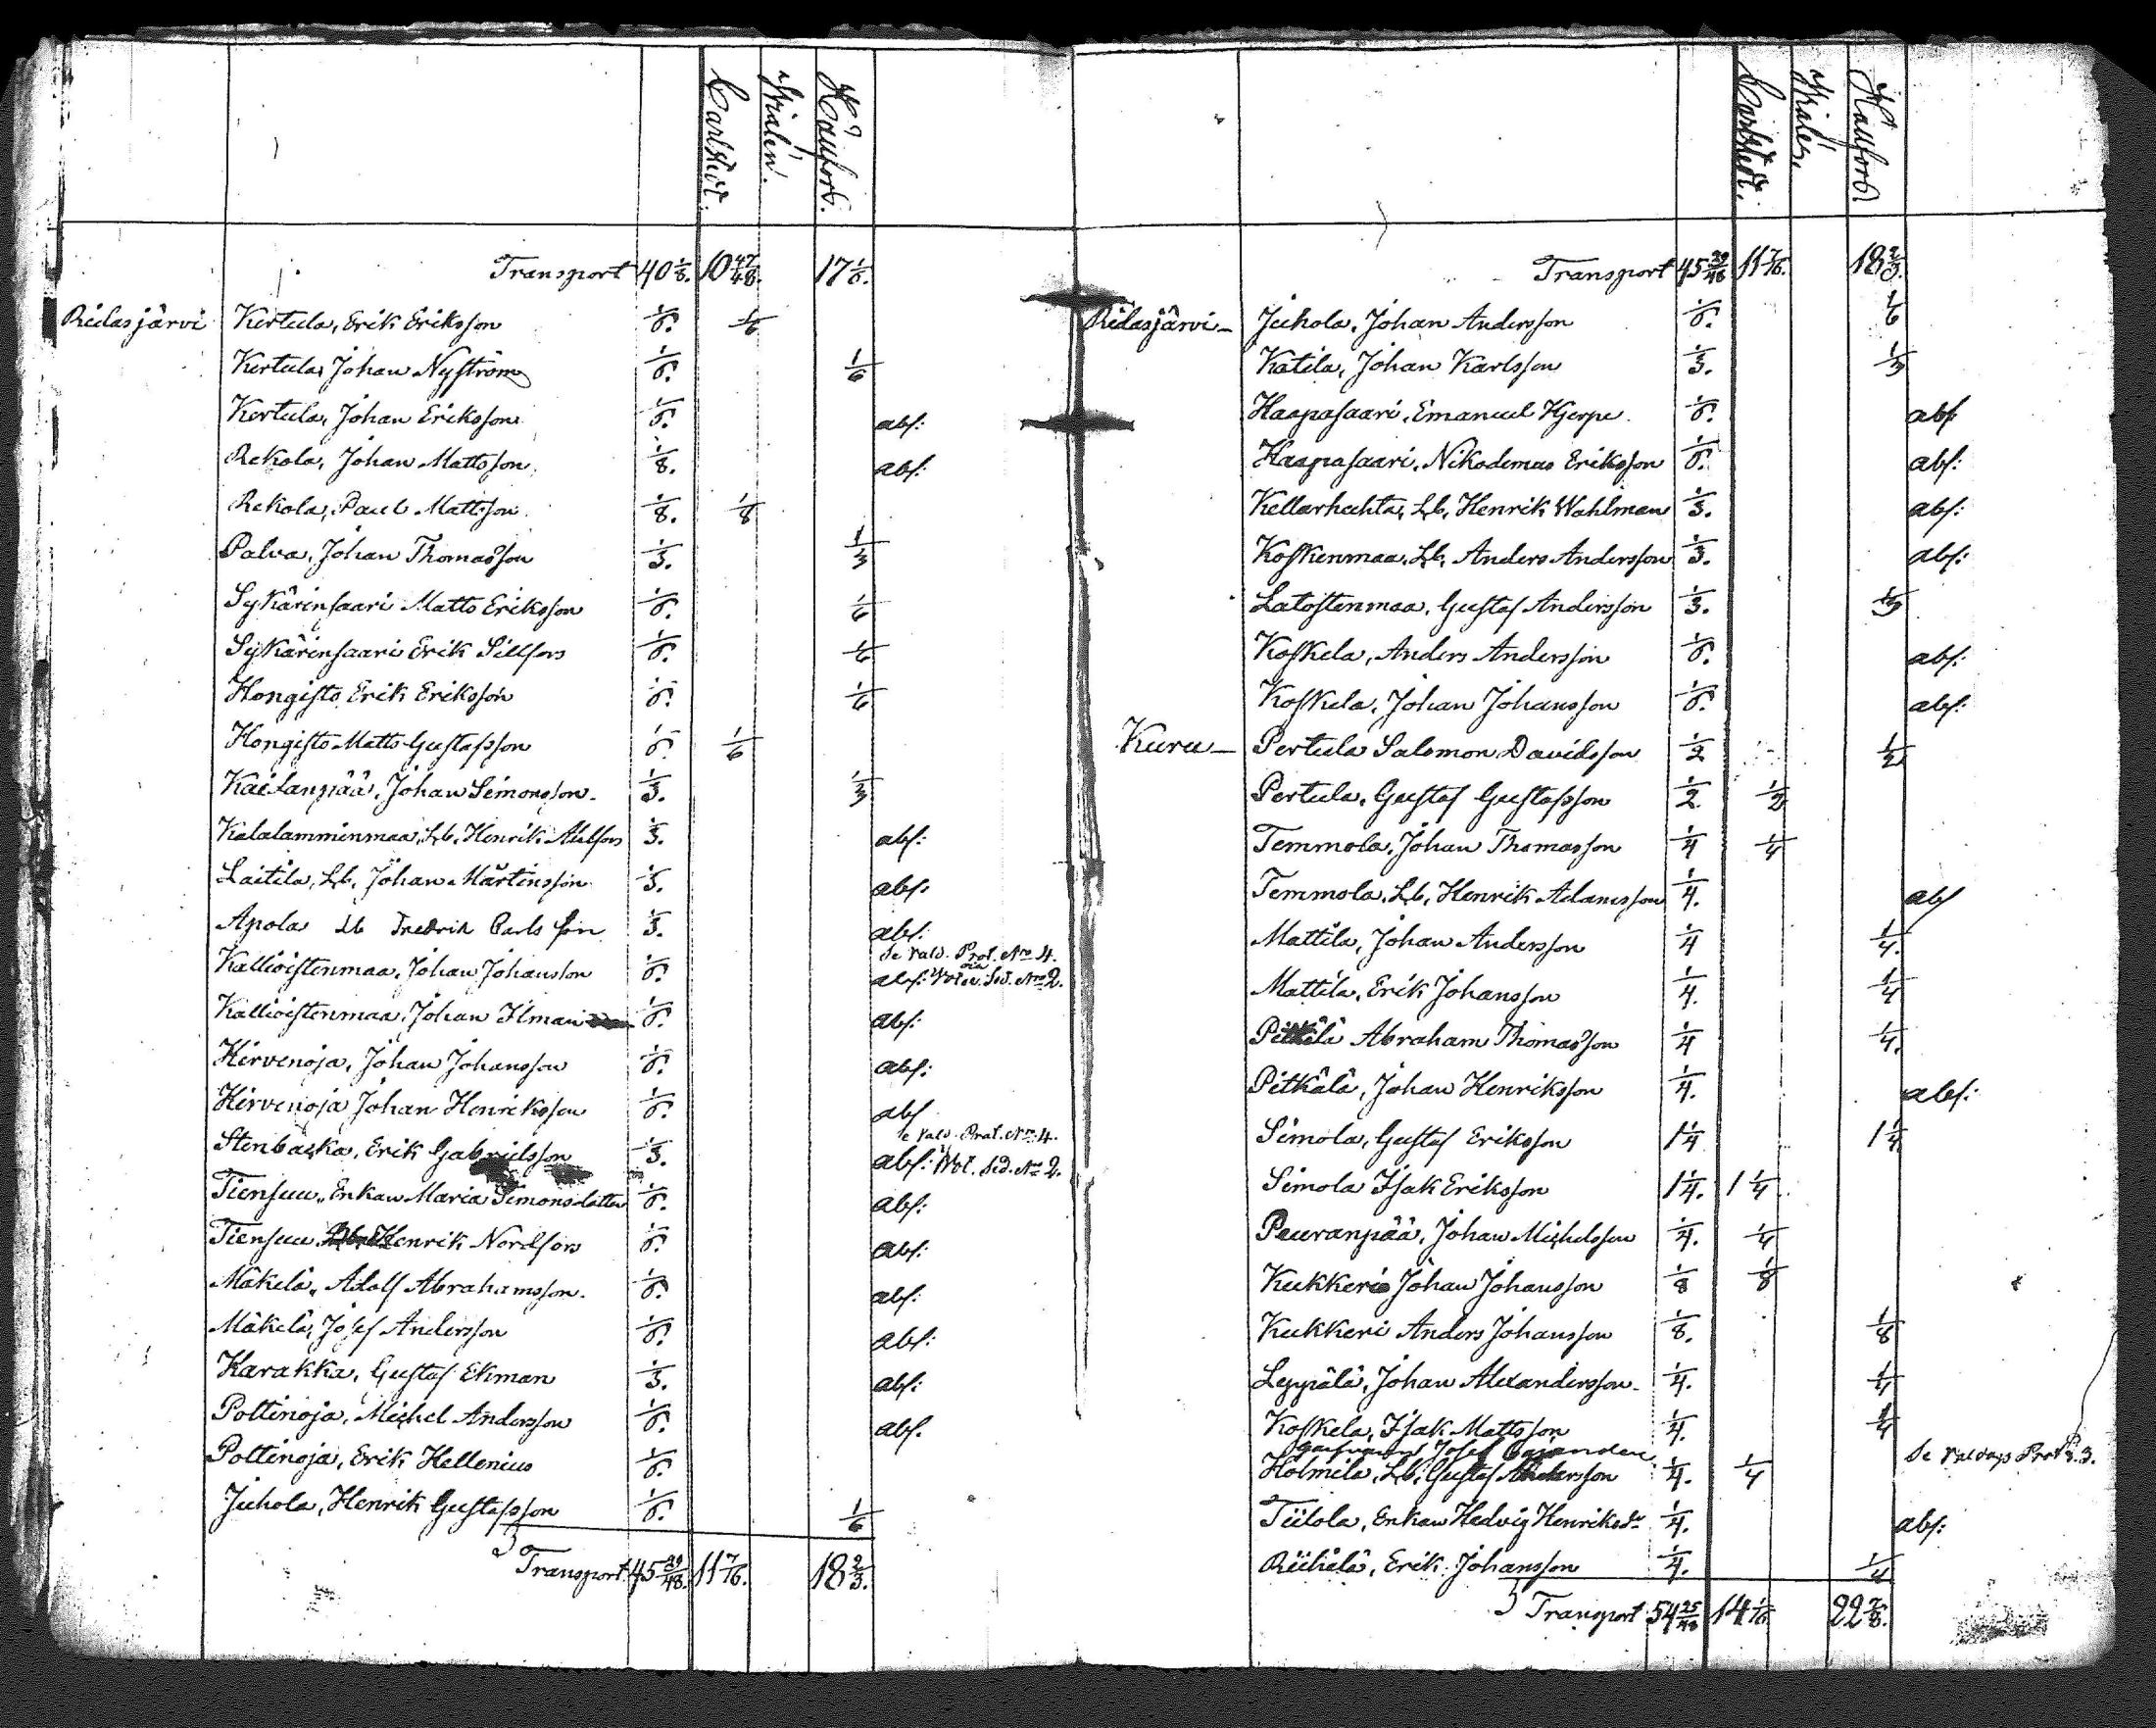 Carlstedt. Hialén. Hällfors.
Transport 40 1/8. 10 47/48. 17 1/6.
Ridasjärvi Kertula, Erik Eriksson 1/6. 1/6
Kertula, Johan Nyström 1/6. 1/6
Kertula, Johan Eriksson 1/6. abs:
Rekola, Johan Mattsson 1/8. abs:
Rekola, Paul Mattsson 1/8. 1/8
Palva, Johan Thomasson 1/3. 1/3
Sykärinsaari Matts Eriksson 1/6. 1/6
Sykärinsaari Erik Sillfors 1/6. 1/6
Hongisto Erik Eriksson 1/6. 1/6
Hongisto Matts Gustafsson 1/6. 1/6
Kaitanpää, Johan Simonsson. 1/3. 1/3
Kalalamminmaa, Lb. Henrik Ahlfors 1/3. abs:
Laitila, Lb. Johan Mårtinsson 1/3. abs:
Apola Lb Fredrik Carlsson 1/3. abs:
Se Vald. Prot. No 4.
Kallioistenmaa, Johan Johansson 1/6. abs: Sed. No 2.
Kallioistenmaa, Johan Ilman 1/6. abs:
Hirvenoja, Johan Johansson 1/6. abs:
Hirvenoja Johan Henriksson 1/6. abs
Se Vald. Prot. No 4.
Stenbacka, Erik Gabrielsson 1/3. abs: Sed. No 2.
Tiensuu, Enkan Maria Simonsdotter 1/6. abs:
Tiensuu Henrik Nordfors 1/6. abs:
Mäkelä, Adolf Abrahamsson. 1/6. abs:
Mäkelä, Josef Andersson 1/6. abs:
Karakka, Gustaf Ekman 1/3. abs:
Poltinoja, Michel Andersson 1/6. abs.
Poltinoja, Erik Hellenius 1/6.
Juhola, Henrik Gustafsson 1/6. 1/6
Transport 45 29/48. 11 7/16. 18 2/3.
Carlstedt. Hialén. Hällfors
Transport 45 29/48 11 7/16. 18 2/3.
Ridasjärvi – Juhola, Johan Andersson 1/6. 1/6
Katila, Johan Karlsson 1/3. 1/3
Haapasaari, Emanuel Hjerpe 1/6. abs
Haapasaari, Nikodemus Eriksson 1/6. abs:
Kellarhuhta, Lb. Henrik Wahlman 1/3. abs:
Koskenmaa, Lb. Anders Andersson 1/3. abs:
Latostenmaa, Gustaf Andersson 1/3. 1/3
Koskela, Anders Andersson 1/6. abs:
Koskela, Johan Johansson 1/6. abs:
Kuru – Pertula Salomon Davidsson 1/2 1/2
Pertula, Gustaf Gustafsson 1/2 1/2
Temmola, Johan Thomasson 1/4 1/4
Temmola, Lb. Henrik Adamsson 1/4. abs
Mattila, Johan Andersson 1/4 1/4.
Mattila, Erik Johansson 1/4. 1/4
Pitkälä Abraham Thomasson 1/4 1/4.
Pitkälä, Johan Henriksson 1/4. abs:
Simola, Gustaf Eriksson 1 1/4 1 1/4
Simola Isak Eriksson 1 1/4. 1 1/4
Peuranpää, Johan Michelsson 1/4. 1/4
Kukkeri Johan Johansson 1/8 1/8
Kukkeri Anders Johansson 1/8. 1/8
Leppälä, Johan Alexandersson 1/4. 1/4
Koskela, Isak Mattsson 1/4. 1/4
Josef Cajander
Holmila, Lb. Gustaf Andersson 1/4. 1/4 Se Valdags Prot § 3.
Tiilola, Enkan Hedvig Henriksdr 1/4. abs:
Riihelä, Erik Johansson 1/4. 1/4
Transport 54 25/48 14 1/16. 22 7/8.